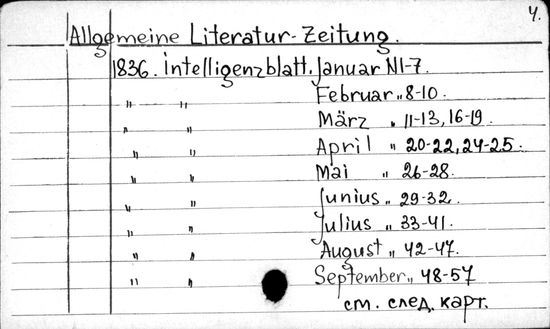 4.
Allgemeine Literatur-Zeitung.
1836. intelligenzblatt. Januar N1-7.
" " Februar " 8-10.
" " März " 11-13, 16-19.
" " April " 20-22, 24-25.
" " Mai " 26-28.
" " Junius " 29-32.
" " Julius " 33-41.
" " August " 42-47.
" " September " 48-57
см. след. карт.